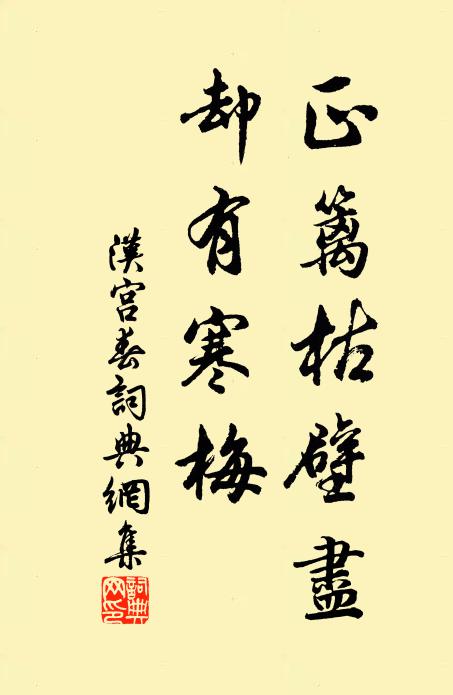 正篱枯壁盡
却有寒梅
漢宮春詞典網集
詞典网印